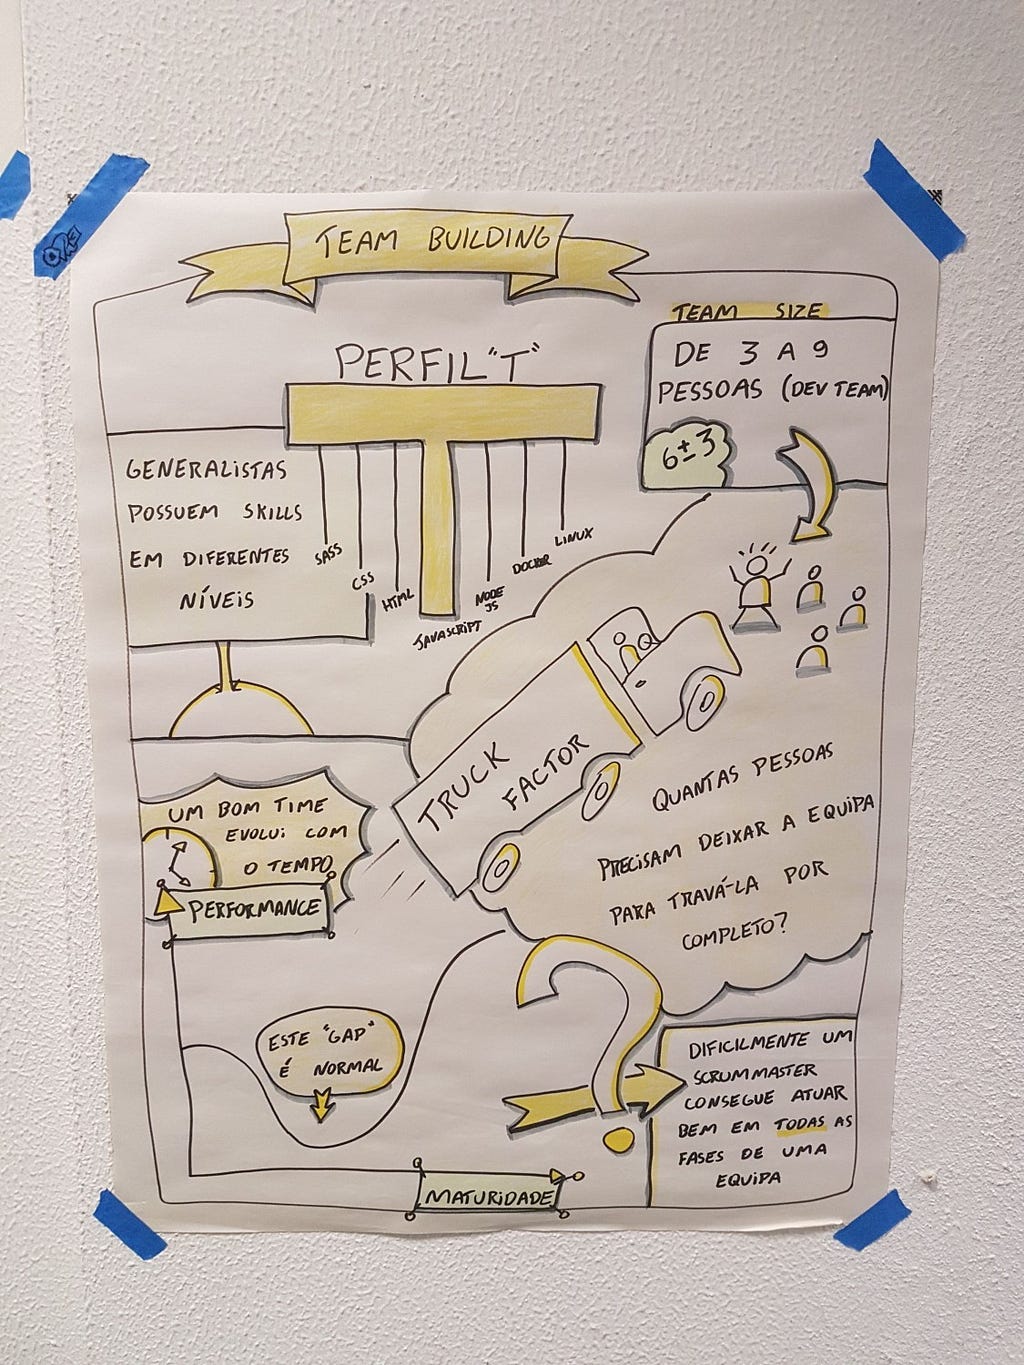 TEAM BUILDING
TEAM SIZE
DE 3 A 9
PESSOAS (DEV TEAM)
6±3
PERFIL "T"
GENERALISTAS
POSSUEM SKILLS
EM DIFERENTES
NÍVEIS
SASS
CSS
HTML
JAVASCRIPT
NODE
JS
DOCKER
LINUX
TRUCK
FACTOR
QUANTAS PESSOAS
PRECISAM DEIXAR A EQUIPA
PARA TRAVÁ-LA POR
COMPLETO?
UM BOM TIME
EVOLUI COM
O TEMPO
PERFORMANCE
ESTE "GAP"
É NORMAL
MATURIDADE
DIFICILMENTE UM
SCRUMMASTER
CONSEGUE ATUAR
BEM EM TODAS AS
FASES DE UMA
EQUIPA